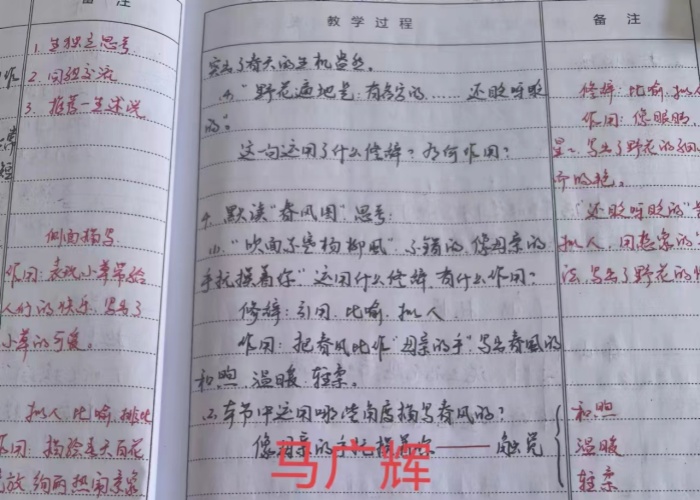 备 注
1. 生独立思考
2. 同组交流
3. 推荐一生来说
侧面描写
作用: 表现小草带给
人们的快乐, 写出了
小草的可爱。
拟人 比喻 排比
作用: 描绘春天百花
教 学 过 程
突出了春天的生机盎然。
“野花遍地是: 有名字的…… 还眨呀眨
的”。
这一句运用了什么修辞? 有何作用?
4. 默读“春风图”思考:
(1) “吹面不寒杨柳风”, 不错的, 像母亲的
手抚摸着你”这用什么修辞, 有什么作用?
修辞: 引用、比喻、拟人
作用: 把春风比作“母亲的手”写出春风的
和煦 温暖 轻柔
(2) 本节中运用哪些角度描写春风的?
像母亲的手抚摸着你——触觉
和煦
温暖
轻柔
备 注
修辞: 比喻. 拟人
作用: 像眼睛,
写出了野花的细
“还眨呀眨的”
拟人,
法, 写出了野花的
马广辉